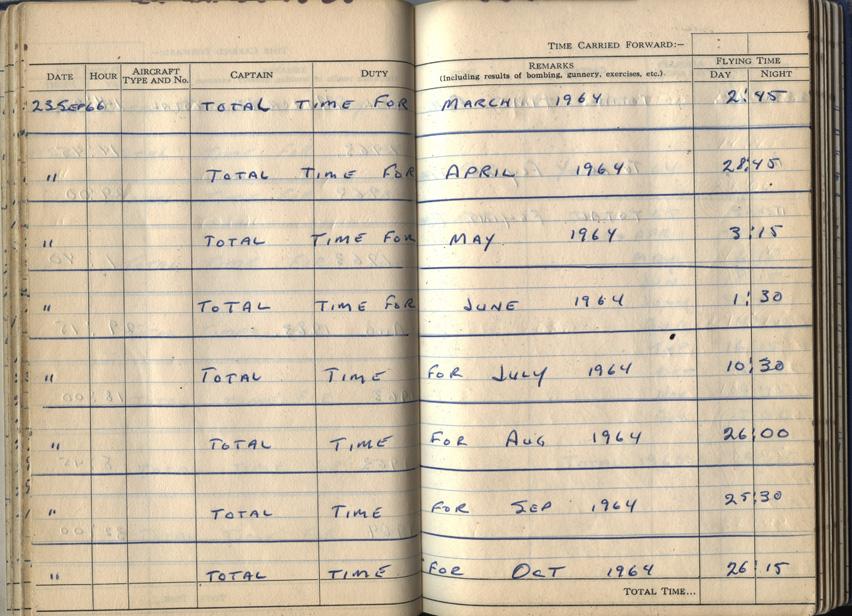 TIME CARRIED FORWARD:—
DATE HOUR AIRCRAFT TYPE AND NO. CAPTAIN DUTY REMARKS (Including results of bombing, gunnery, exercises, etc.) FLYING TIME DAY NIGHT
23 SEP 66 TOTAL TIME FOR MARCH 1964 2:45
" TOTAL TIME FOR APRIL 1964 28:45
" TOTAL TIME FOR MAY 1964 3:15
" TOTAL TIME FOR JUNE 1964 1:30
" TOTAL TIME FOR JULY 1964 10:30
" TOTAL TIME FOR AUG 1964 26:00
" TOTAL TIME FOR SEP 1964 25:30
" TOTAL TIME FOR OCT 1964 26:15
TOTAL TIME...